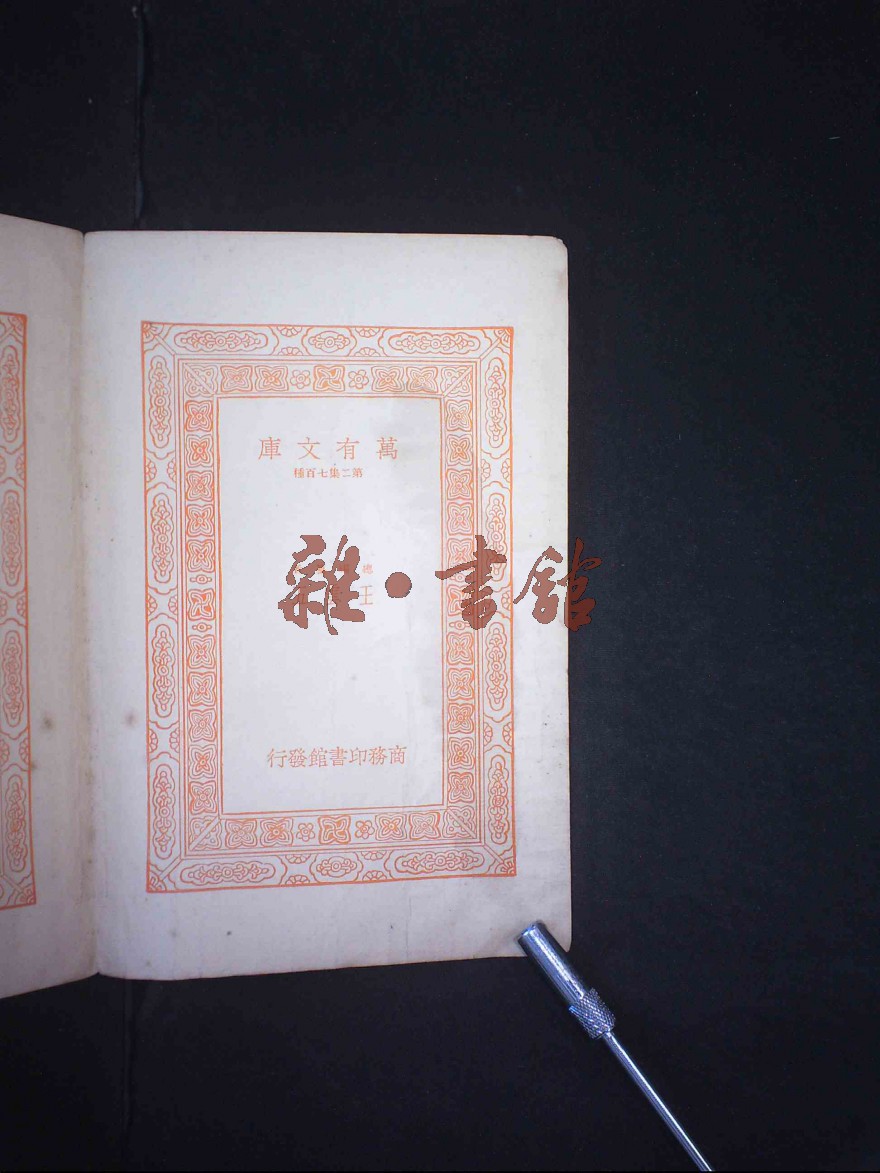 萬有文庫
第二集七百種
總
王
雜·書館
商務印書館發行